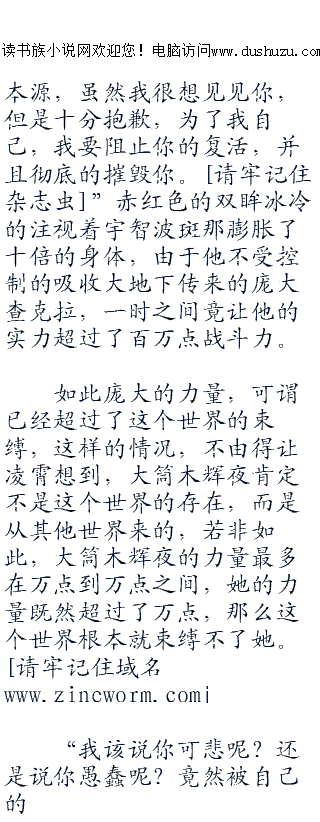 读书族小说网欢迎您！电脑访问www.dushuzu.com
本源，虽然我很想见见你，
但是十分抱歉，为了我自
己，我要阻止你的复活，并
且彻底的摧毁你。[请牢记住
杂志虫]”赤红色的双眸冰冷
的注视着宇智波斑那膨胀了
十倍的身体，由于他不受控
制的吸收大地下传来的庞大
查克拉，一时之间竟让他的
实力超过了百万点战斗力。
如此庞大的力量，可谓
已经超过了这个世界的束
缚，这样的情况，不由得让
凌霄想到，大筒木辉夜肯定
不是这个世界的存在，而是
从其他世界来的，若非如
此，大筒木辉夜的力量最多
在万点到万点之间，她的力
量既然超过了万点，那么这
个世界根本就束缚不了她。
[请牢记住域名
www.zincworm.com|
“我该说你可悲呢？还
是说你愚蠢呢？竟然被自己
的